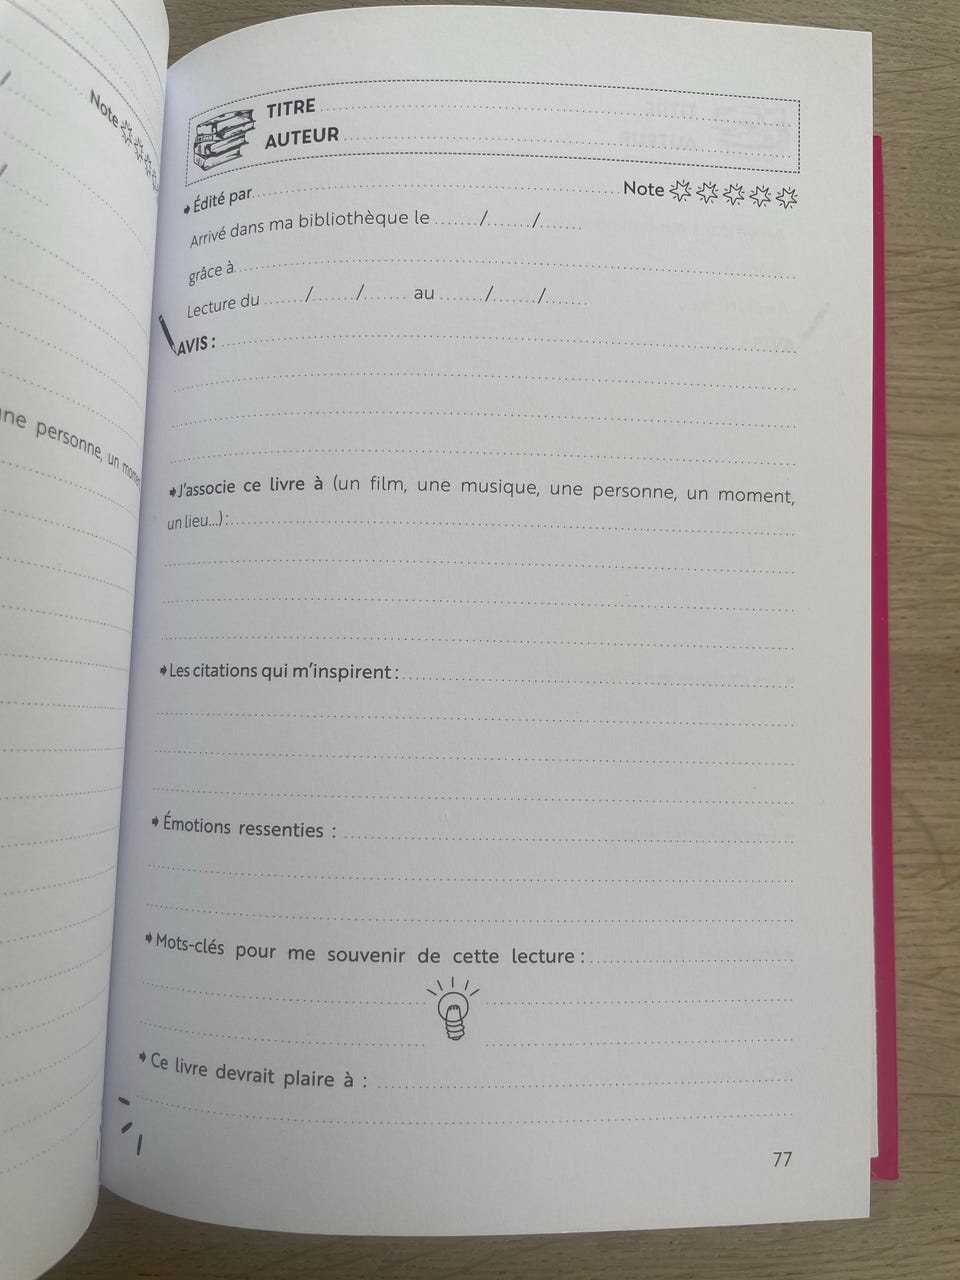 Note
une personne, un moment
TITRE
AUTEUR
Édité par
Note
Arrivé dans ma bibliothèque le ....../....../......
grâce à
Lecture du ....../....../...... au ....../....../......
AVIS :
J'associe ce livre à (un film, une musique, une personne, un moment,
un lieu...) :
Les citations qui m'inspirent :
Émotions ressenties :
Mots-clés pour me souvenir de cette lecture :
Ce livre devrait plaire à :
77